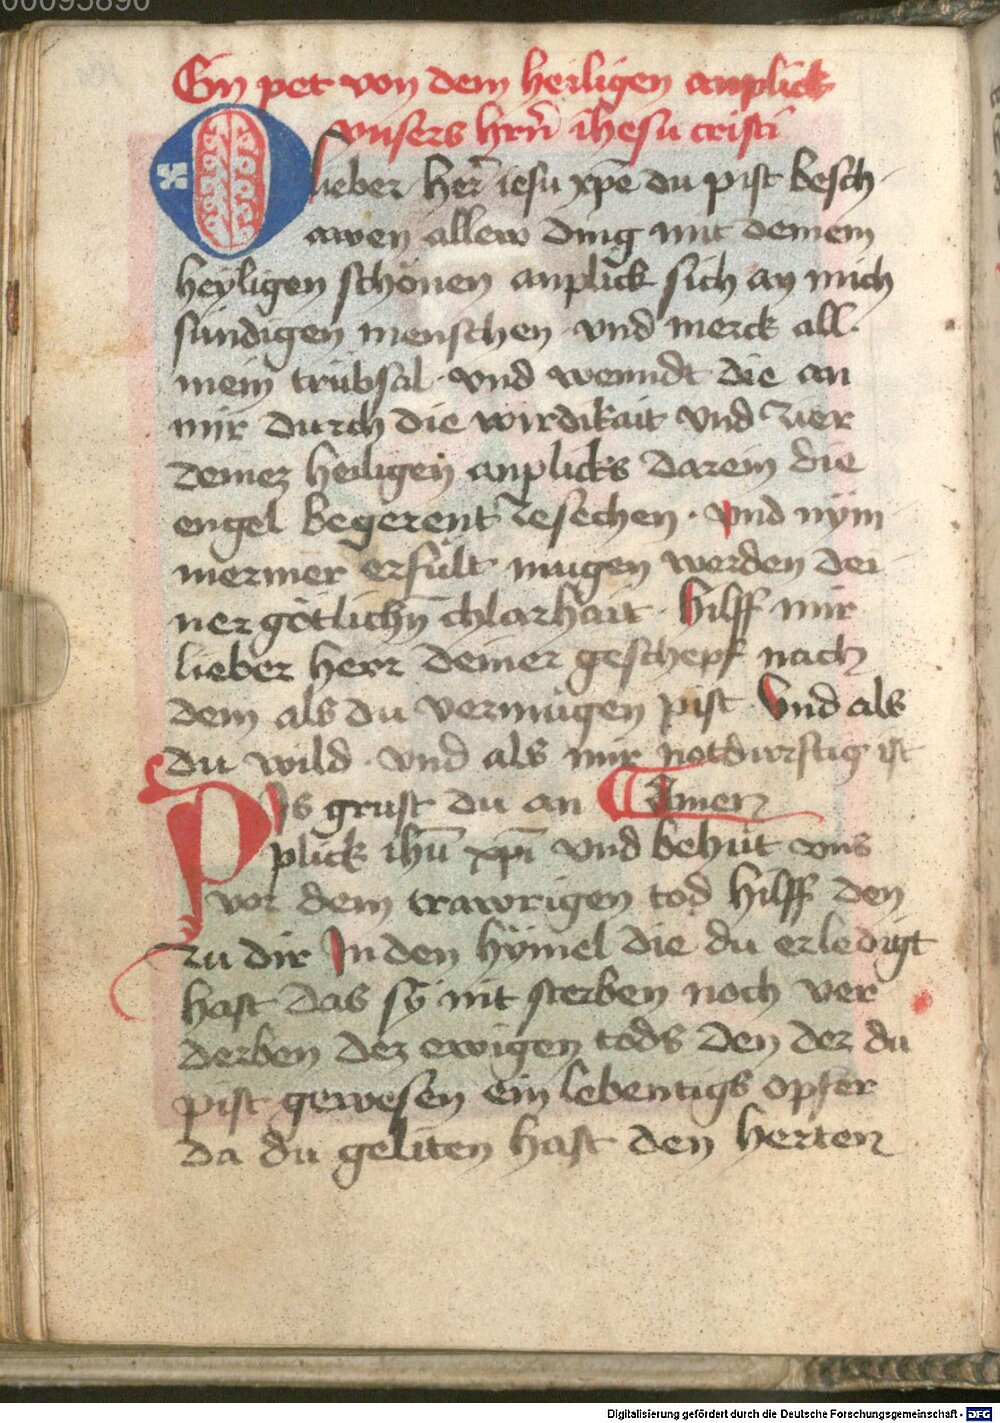 00095890
Ein pet von dem heiligen anplick
vnsers hrñ ihesu cristi
O lieber her̃ iesu xp̄e du pist besch
awen allew ding mit deinem
heyligen schönen anplick sich an mich
sündigen menschen vnd merck all
mein trübsal vnd wenndt die an
mir durch die wirdikait vnd zier
deinez heiligen anplicks darein die
engel begerent zesechen · vnd nÿm
mermer erfült mugen werden dei
ner götlichn̄ chlarhait · hilff mir
lieber herr deiner geschepf nach
dem als du vermügen pist · Vnd als
du wild · vnd als mir notdurftig ist
Pis grust du an Amen
plick ihū xp̄i vnd behüt vns
vor dem trawrigen tod hilff den
zu dir In den hÿmel die du erledigt
hast das sÿ nit sterben noch ver
derben dez ewigen tods den der du
pist gewesen ein lebentigs opfer
da du geliten hast den herten
Digitalisierung gefördert durch die Deutsche Forschungsgemeinschaft - DFG